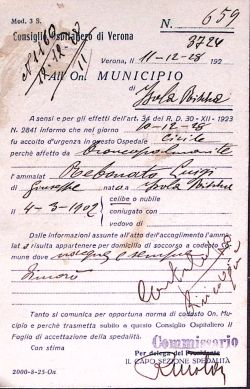 Mod. 3 S.
N. 659
Consiglio Ospitaliero di Verona
3724
Verona, 11-12-28 192
All'On. MUNICIPIO
di
Isola Rizza
A sensi e per gli effetti dell'art. 34 del R. D. 30 - XII - 1923
N. 2841 informo che nel giorno 10-12-28
fu accolto d'urgenza in questo Ospedale Civile
perchè affetto da Broncopolmonite
l'ammalat Rebonato Luigi
di Giuseppe nato a Isola Rizza
il 4-3-1902 celibe o nubile
coniugato con
vedovo di
Dalle informazioni assunte all'atto dell'accoglimento l'amma-
lat risulta appartenere per domicilio di soccorso a codesto Co-
mune dove nacque e sempre
dimorò
Tanto si comunica per opportuna norma di codesto On. Muni-
cipio e perchè trasmetta subito a questo Consiglio Ospitaliero il
Foglio di accettazione della spedalità.
Con stima
Commissario
Per delega del Presidente
IL CAPO SEZIONE SPEDALITÀ
2000-8-25-On.